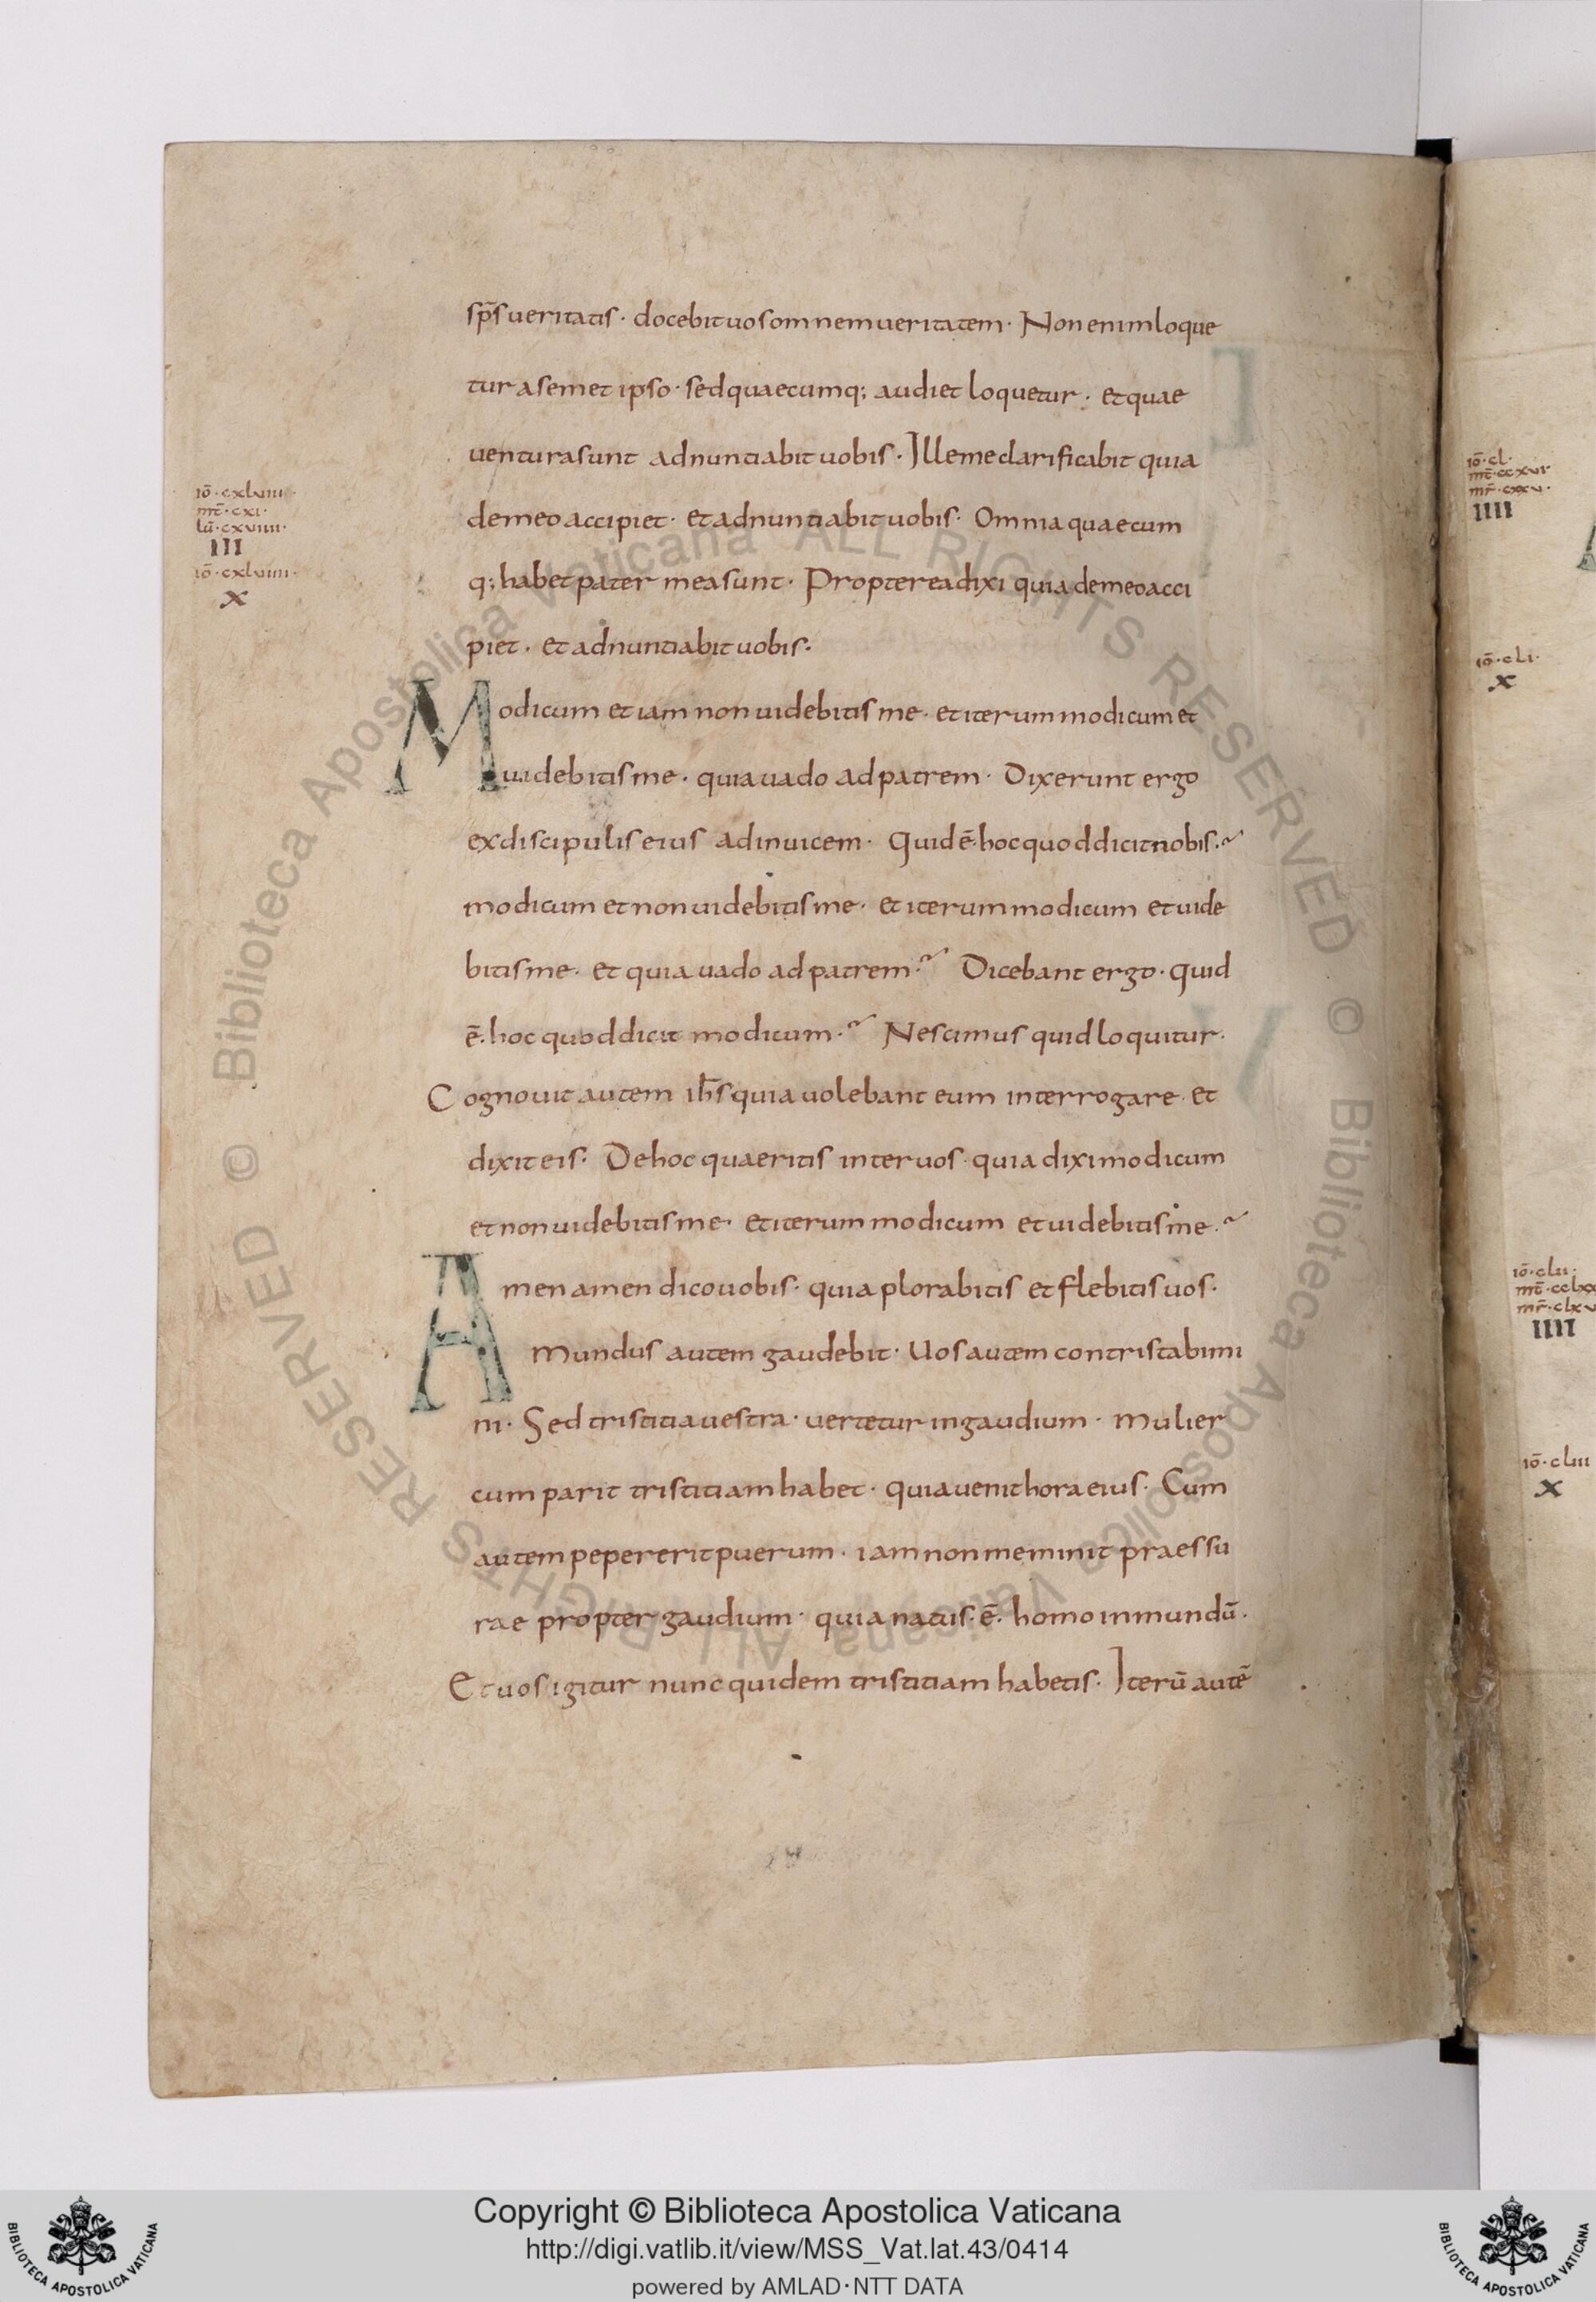 sp̄s ueritatis · docebit uos omnem ueritatem · Non enim loque
tur a semet ipso · sed quaecumq; audiet loquetur · et quae
uentura sunt adnuntiabit uobis · Ille me clarificabit quia
de meo accipiet · et adnuntiabit uobis · Omnia quaecum
q; habet pater mea sunt · Propterea dixi quia de meo acci
piet · et adnuntiabit uobis ·
Modicum et iam non uidebitis me · et iterum modicum et
uidebitis me · quia uado ad patrem · Dixerunt ergo
ex discipulis eius ad inuicem · Quid ē· hoc quod dicit nobis ·~
modicum et non uidebitis me · et iterum modicum et uide
bitis me · et quia uado ad patrem ·~ Dicebant ergo · quid
ē· hoc quod dicit modicum ·~ Nescimus quid loquitur ·
Cognouit autem ih̄s quia uolebant eum interrogare · et
dixit eis · De hoc quaeritis inter uos · quia dixi modicum
et non uidebitis me · et iterum modicum et uidebitis me ·~
Amen amen dico uobis · quia plorabitis et flebitis uos ·
mundus autem gaudebit · Uos autem contristabimi
ni · Sed tristitia uestra · uertetur in gaudium · mulier
cum parit tristitiam habet · quia uenit hora eius · Cum
autem pepererit puerum · iam non meminit praessu
rae propter gaudium · quia natus ·ē· homo in mundū ·
Et uos igitur nunc quidem tristitiam habetis · Iterū autē
iō · cxlviii ·
mt̄ · cxi ·
lū · cxviiii ·
III
iō · cxlviiii ·
X
iō · cl ·
mt̄ · ccxvi ·
mr̄ · cxxv ·
IIII
iō · cli ·
X
iō · clii ·
mt̄ · cclxx
mr̄ · clxv
IIII
iō · cliii
X
© Biblioteca Apostolica Vaticana ALL RIGHTS RESERVED © Biblioteca Apostolica Vaticana ALL RIGHTS RESERVED
Copyright © Biblioteca Apostolica Vaticana
http://digi.vatlib.it/view/MSS_Vat.lat.43/0414
powered by AMLAD·NTT DATA
BIBLIOTECA APOSTOLICA VATICANA
BIBLIOTECA APOSTOLICA VATICANA